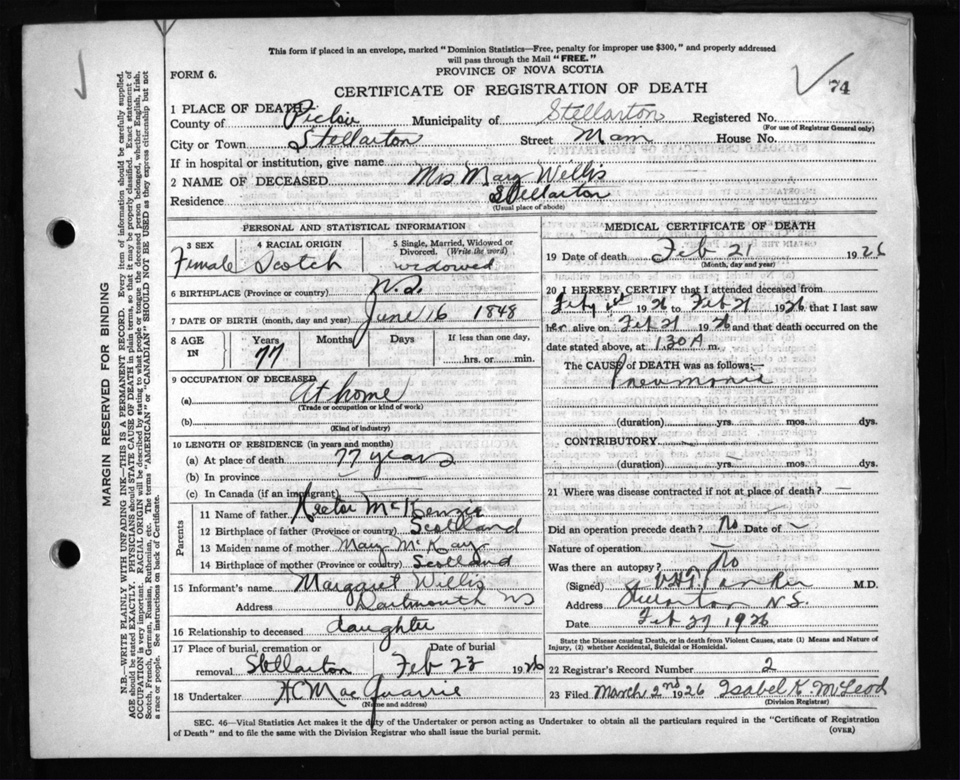 This form if placed in an envelope, marked "Dominion Statistics—Free, penalty for improper use $300," and properly addressed
will pass through the Mail "FREE."
FORM 6.
PROVINCE OF NOVA SCOTIA
CERTIFICATE OF REGISTRATION OF DEATH
74
1 PLACE OF DEATH
County of Pictou Municipality of Stellarton Registered No.
(For use of Registrar General only)
City or Town Stellarton Street Main House No.
If in hospital or institution, give name
2 NAME OF DECEASED Mrs Mary Willis
Residence Stellarton
(Usual place of abode)
PERSONAL AND STATISTICAL INFORMATION
3 SEX 4 RACIAL ORIGIN 5 Single, Married, Widowed or Divorced. (Write the word)
Female Scotch widowed
6 BIRTHPLACE (Province or country) N.S.
7 DATE OF BIRTH (month, day and year) June 16 1848
8 AGE IN Years Months Days If less than one day,
77 hrs. or min.
9 OCCUPATION OF DECEASED
(a) At home
(Trade or occupation or kind of work)
(b)
(Kind of industry)
10 LENGTH OF RESIDENCE (in years and months)
(a) At place of death 77 years
(b) In province
(c) In Canada (if an immigrant)
Parents
11 Name of father Hector McKenzie
12 Birthplace of father (Province or country) Scotland
13 Maiden name of mother Mary McKay
14 Birthplace of mother (Province or country) Scotland
15 Informant's name Margaret Willis
Address Dartmouth NS
16 Relationship to deceased daughter
17 Place of burial, cremation or removal Stellarton Date of burial Feb 23 1926
18 Undertaker H C MacQuarrie
(Name and address)
MEDICAL CERTIFICATE OF DEATH
19 Date of death Feb 21 1926
(Month, day and year)
20 I HEREBY CERTIFY that I attended deceased from
1926 to Feb 21 1926 that I last saw
her alive on Feb 21 1926 and that death occurred on the
date stated above, at 1.30 A m.
The CAUSE of DEATH was as follows:—
Pneumonia
(duration) yrs. mos. dys.
CONTRIBUTORY
(duration) yrs. mos. dys.
21 Where was disease contracted if not at place of death? —
Did an operation precede death? No Date of —
Nature of operation —
Was there an autopsy? No
(Signed) M.D.
Address Stellarton N.S.
Date Feb 27 1926
State the Disease causing Death, or in death from Violent Causes, state (1) Means and Nature of
Injury, (2) whether Accidental, Suicidal or Homicidal.
22 Registrar's Record Number 2
23 Filed March 2nd 1926 Isabel K. McLeod
(Division Registrar)
SEC. 46—Vital Statistics Act makes it the duty of the Undertaker or person acting as Undertaker to obtain all the particulars required in the "Certificate of Registration
of Death" and to file the same with the Division Registrar who shall issue the burial permit.
(OVER)
MARGIN RESERVED FOR BINDING
N.B.—WRITE PLAINLY WITH UNFADING INK—THIS IS A PERMANENT RECORD. Every item of information should be carefully supplied.
AGE should be stated EXACTLY. PHYSICIANS should STATE CAUSE OF DEATH in plain terms, so that it may be properly classified. Exact statement of
OCCUPATION is very important. RACIAL ORIGIN will be described by stating to what people or tongue the deceased person belonged, whether English, Irish,
Scotch, French, German, Russian, Ruthenian, etc. The terms "AMERICAN" or "CANADIAN" SHOULD NOT BE USED as they express citizenship but not
a race or people. See instructions on back of Certificate.